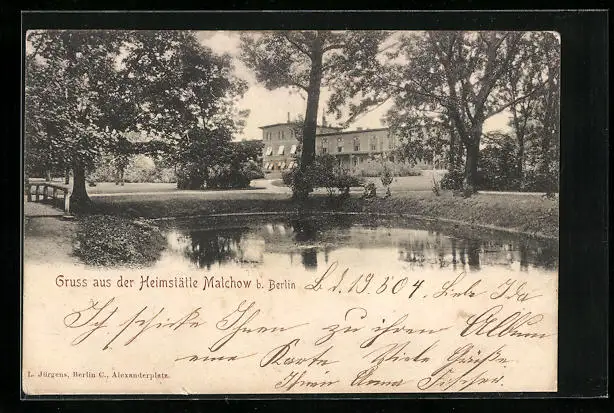 Gruss aus der Heimstätte Malchow b. Berlin
L. d. 19.5 04. Liebe Ida
Ich schicke Ihnen zu ihren Album
eine Karte Viele Grüße
Ihre Anna Fischer.
L. Jürgens, Berlin C., Alexanderplatz.